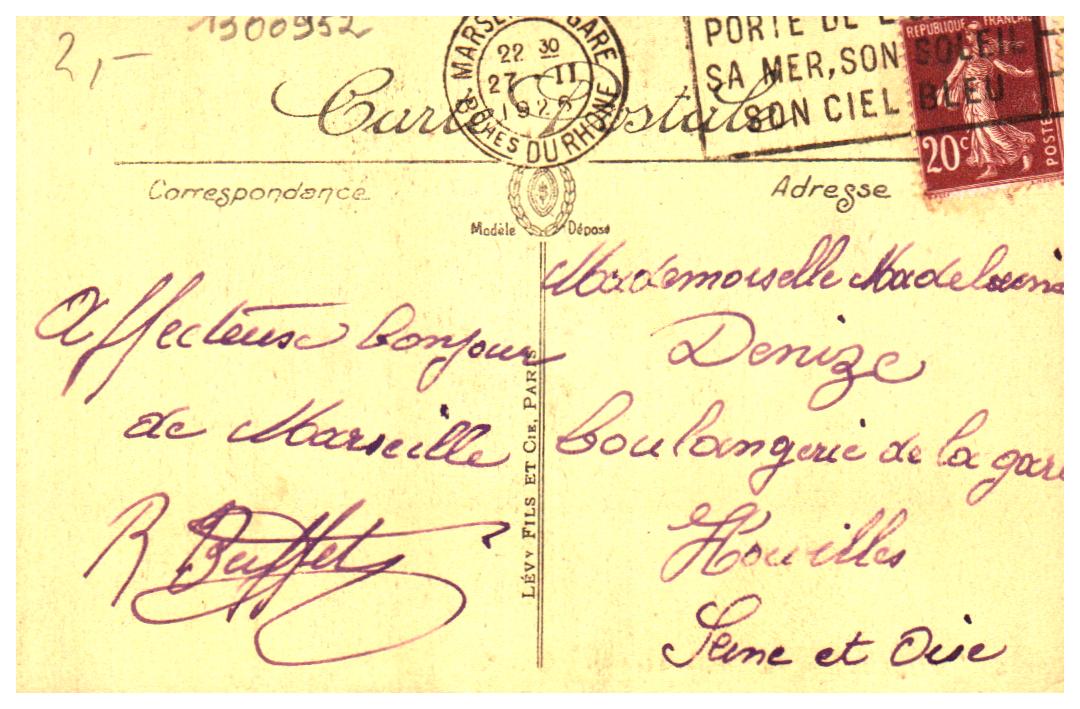 1300952
2,-
MARSEILLE GARE
22 30
27 - II
1926
BCHES DU RHONE
PORTE DE
SA MER, SON SOLEIL
SON CIEL BLEU
REPUBLIQUE FRANÇAISE
20c
POSTES
Carte Postale
Correspondance
Adresse
Modèle Déposé
Affectueuse bonjour
de Marseille
R Buffet
LÉVY FILS ET CIE, PARIS
Mademoiselle Madeleine
Denize
boulangerie de la gare
Houilles
Seine et Oise